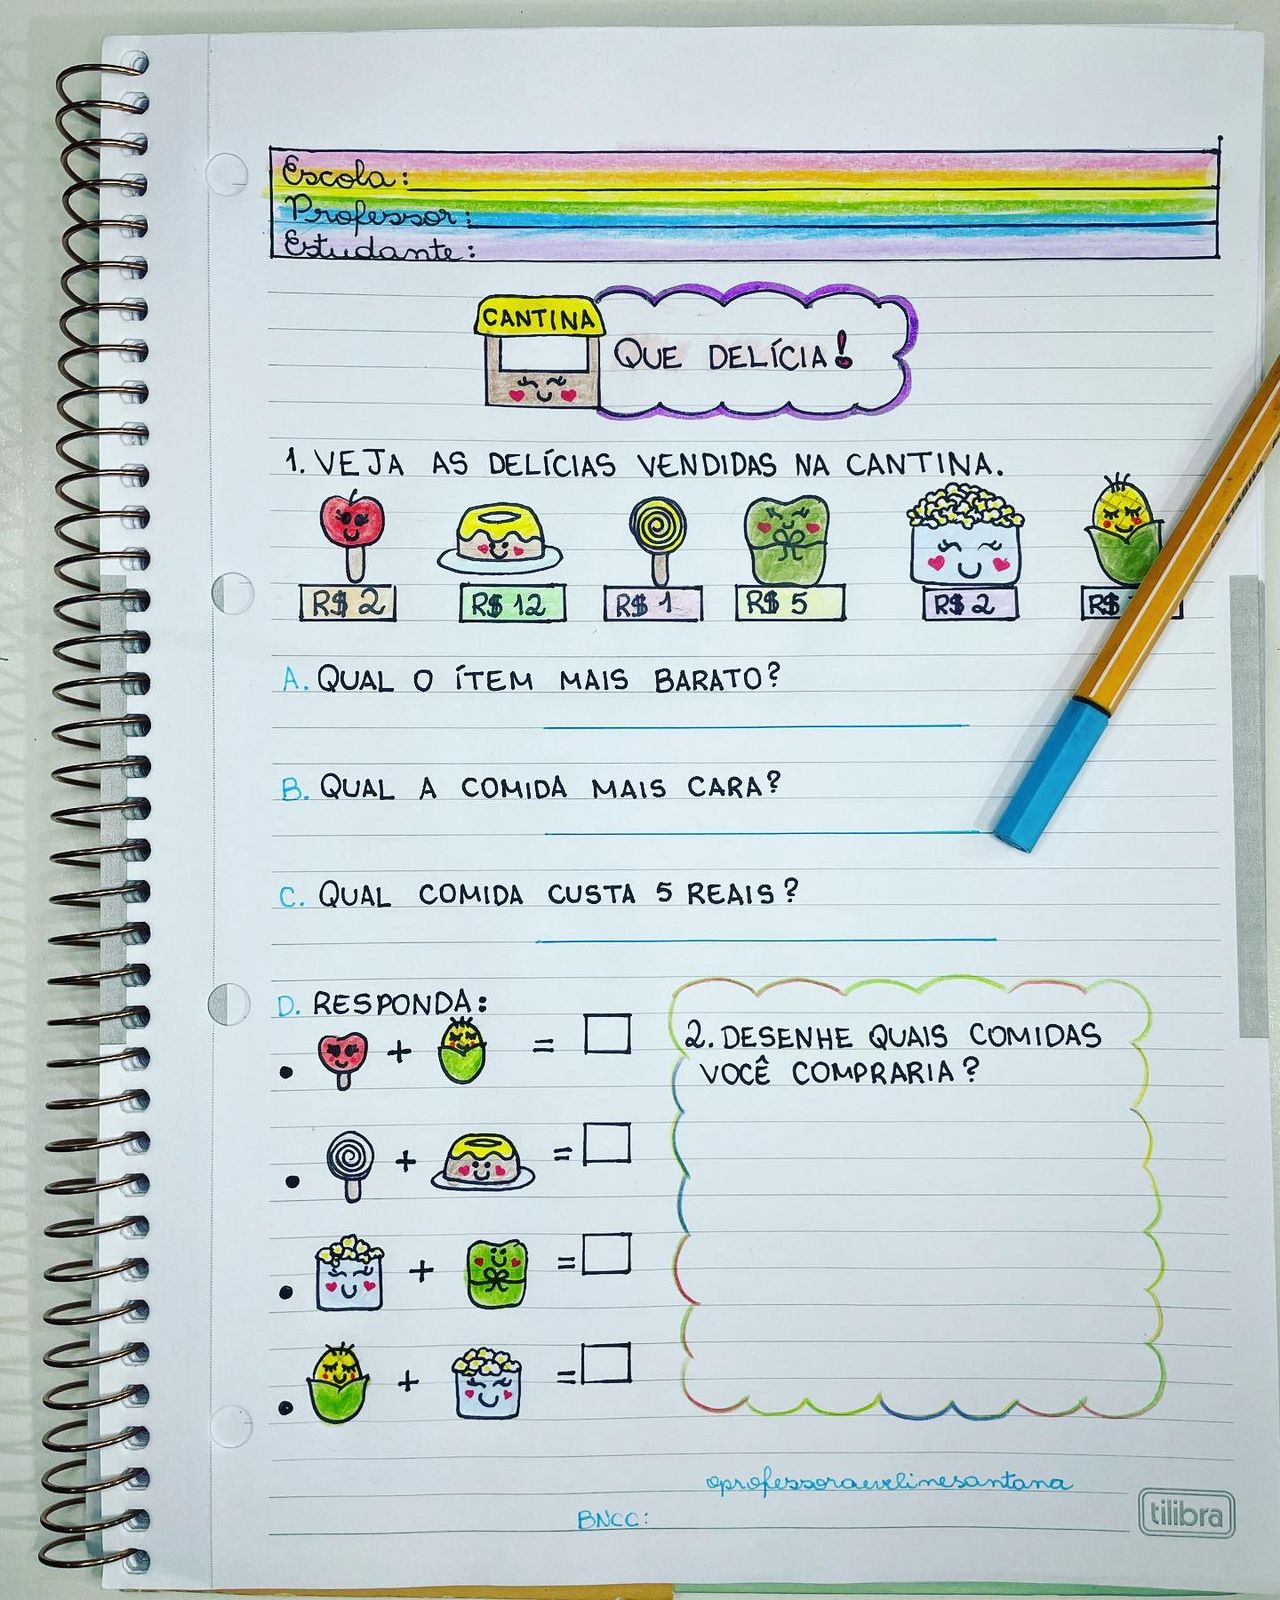 Escola:
Professor:
Estudante:
CANTINA
QUE DELÍCIA!
1. VEJA AS DELÍCIAS VENDIDAS NA CANTINA.
R$ 2 R$ 12 R$ 1 R$ 5 R$ 2 R$
A. QUAL O ÍTEM MAIS BARATO?
B. QUAL A COMIDA MAIS CARA?
C. QUAL COMIDA CUSTA 5 REAIS?
D. RESPONDA:
• + =
• + =
• + =
• + =
2. DESENHE QUAIS COMIDAS
VOCÊ COMPRARIA?
@professoraevelinesantana
BNCC:
tilibra